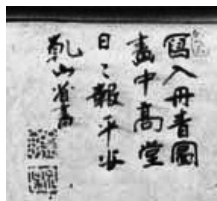 寫入丹青圖
畫中高堂
日〻報平安
乾山省書